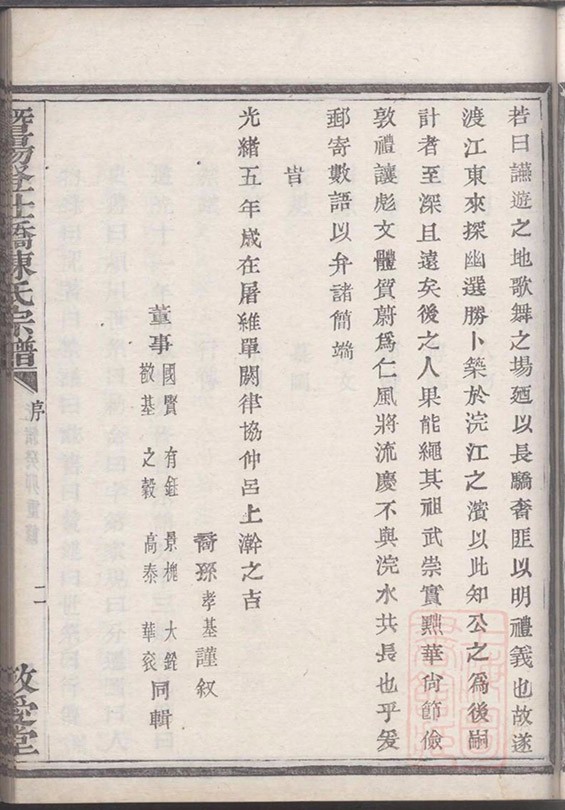 若曰讌遊之地歌舞之場廼以長驕奢匪以明禮義也故遂
渡江東來探幽選勝卜築於浣江之濱以此知公之為後嗣
計者至深且遠矣後之人果能繩其祖武崇實黜華尙節儉
敦禮讓彪文體質蔚為仁風將流慶不與浣水共長也乎爰
郵寄數語以弁諸簡端
旹
光緒五年歲在屠維單閼律協仲呂上澣之吉
裔孫孝基謹叙
董事 國賢 有鉦 景槐 大銓
敬基 之穀 高泰 華袞 同輯
暨陽登仕橋陳氏宗譜 序 二 敬愛堂